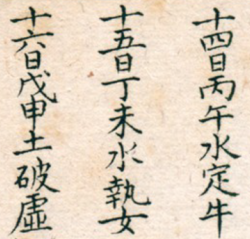 十四日丙午水定牛
十五日丁未水執女
十六日戊申土破虛